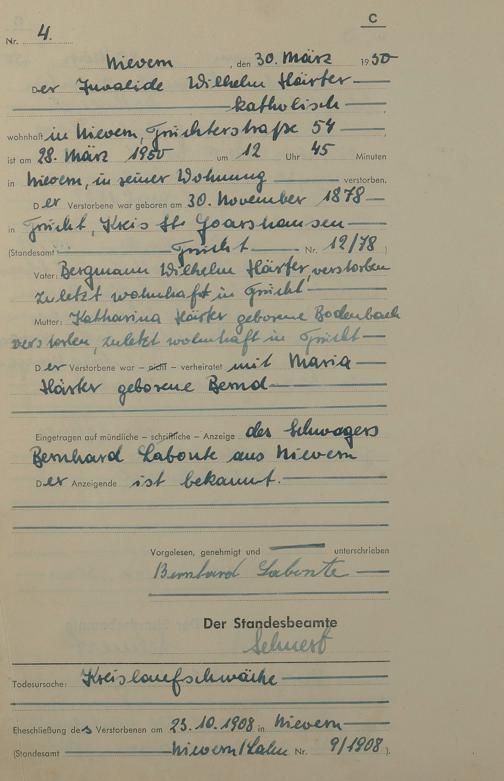 C
Nr. 4.
Nievern, den 30. März 1950
Der Invalide Wilhelm Härter
katholisch
wohnhaft in Nievern, Früchterstraße 54
ist am 28. März 1950 um 12 Uhr 45 Minuten
in Nievern, in seiner Wohnung verstorben.
Der Verstorbene war geboren am 30. November 1878
in Frücht, Kreis St. Goarshausen
(Standesamt Frücht Nr. 12/78)
Vater: Bergmann Wilhelm Härter, verstorben
zuletzt wohnhaft in Frücht
Mutter: Katharina Härter geborene Bodenbach
verstorben, zuletzt wohnhaft in Frücht
Der Verstorbene war – nicht – verheiratet mit Maria
Härter geborene Bernd
Eingetragen auf mündliche – schriftliche – Anzeige des Schwagers
Bernhard Labonte aus Nievern
Der Anzeigende ist bekannt.
Vorgelesen, genehmigt und unterschrieben
Bernhard Labonte
Der Standesbeamte
Todesursache: Kreislaufschwäche
Eheschließung des Verstorbenen am 23.10.1908 in Nievern
(Standesamt Nievern/Lahn Nr. 9/1908).